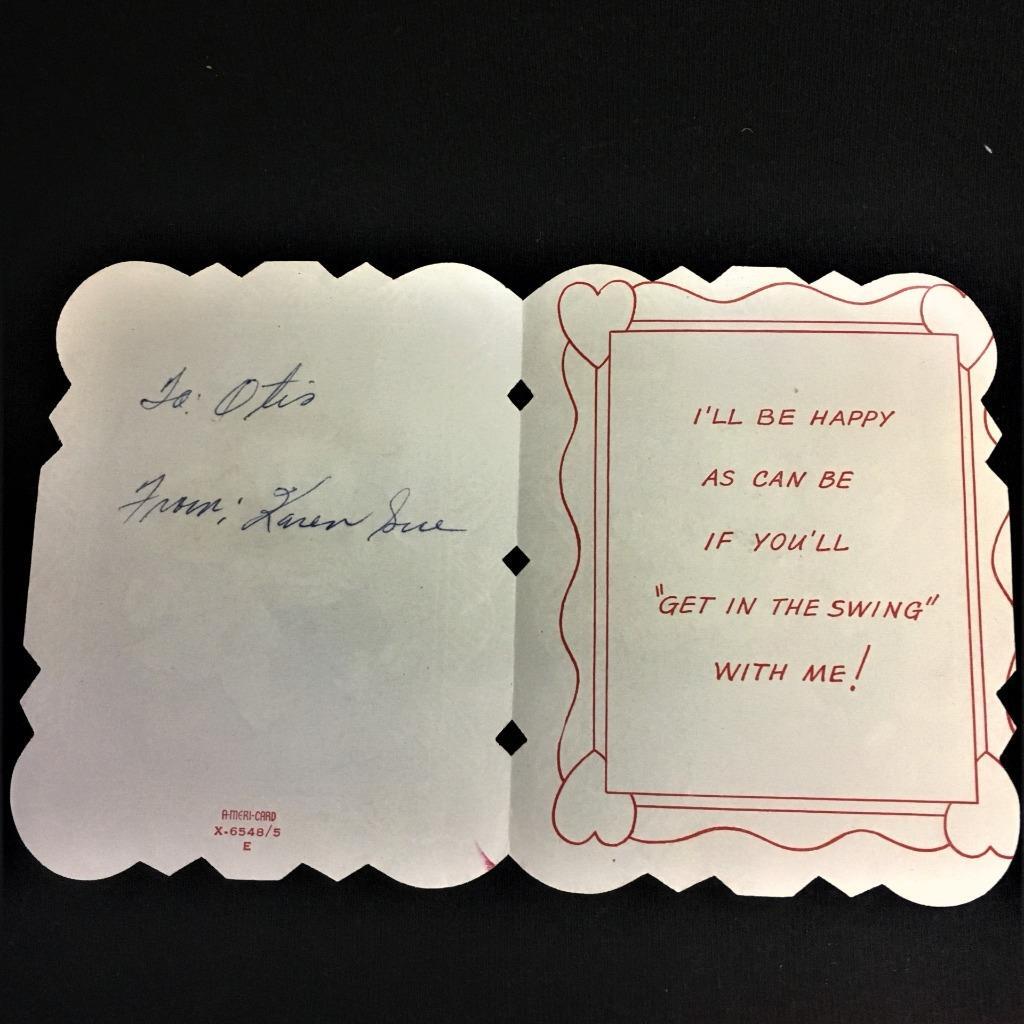 To: Otis
From: Karen Sue
A-MERI-CARD
X-6548/5
E
I'LL BE HAPPY
AS CAN BE
IF YOU'LL
"GET IN THE SWING"
WITH ME!